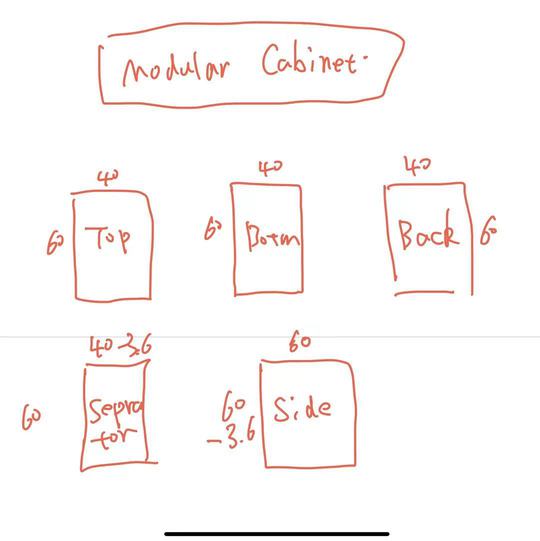 Modular Cabinet.
40 40 40
60 Top 60 Botm Back 60
40-3.6 60
60 Sepra
tor
60
-3.6 Side